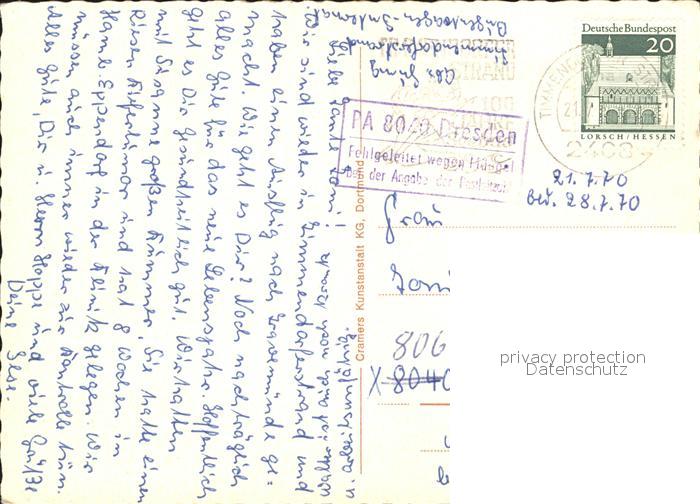 Abs. Jung
Timmendorferstrand
Liebe Tante Toni!
Wir sind wieder in Timmendorferstrand und
haben einen Ausflug nach Travemünde ge-
macht. Wie geht es Dir? Noch nachträglich
alles Gute für das neue Lebensjahr. Hoffentlich
geht es Dir gesundheitlich gut. Wir hatten
mit Susanne großen Kummer. Sie hatte einen
und hat 8 Wochen in
Hamb. Eppendorf in der Klinik gelegen. Wir
müssen auch immer wieder zur Kontrolle hin.
Alles Gute, Dir u. Herrn Hoppe und viele Grüße
Deine
u. arbeitsunfähig.
Cramers Kunstanstalt KG, Dortmund
Deutsche Bundespost
20
LORSCH / HESSEN
2408
PA 8060 Dresden
Fehlgeleitet wegen Mängel
bei der Angabe der Postleitzahl
21.7.70
28.7.70
Frau
Toni
806
X-8040
privacy protection
Datenschutz